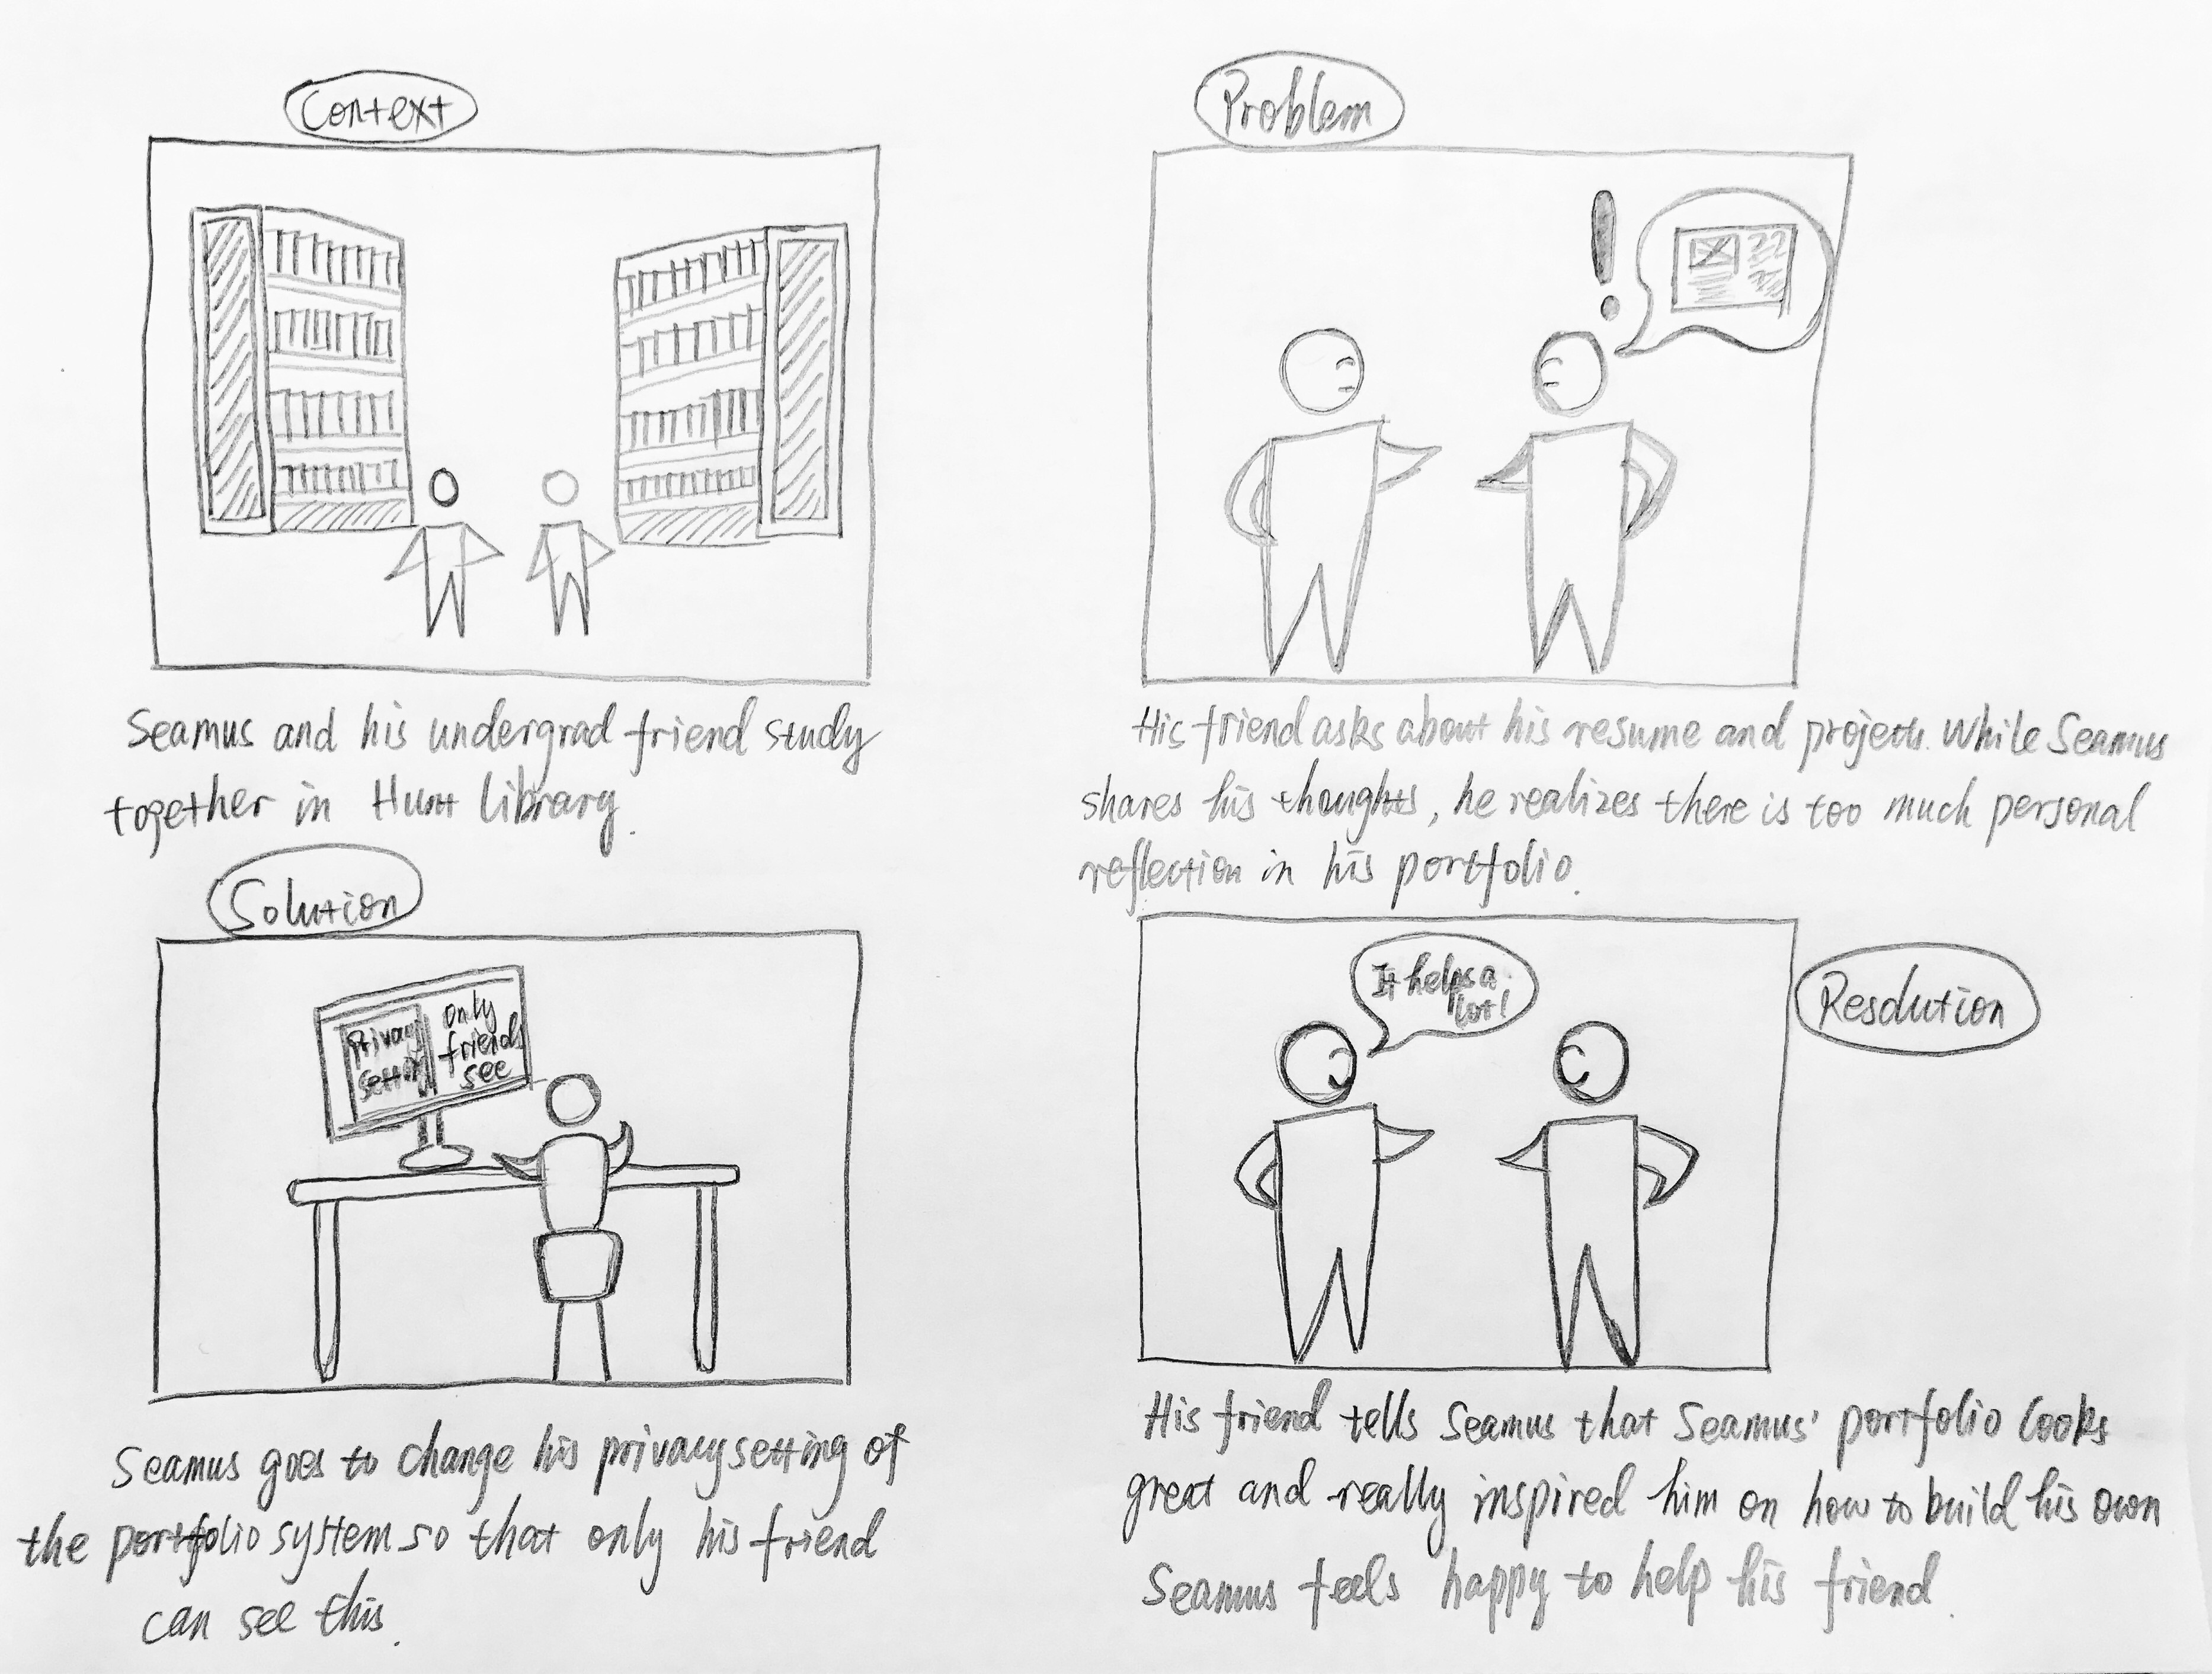 Context
Seamus and his undergrad friend study
together in Hunt library.
Problem
His friend asks about his resume and projects. While Seamus
shares his thoughts, he realizes there is too much personal
reflection in his portfolio.
Solution
Privacy
setting
only
friends
see
Seamus goes to change his privacy setting of
the portfolio system so that only his friend
can see this.
Resolution
It helps a
lot!
His friend tells Seamus that Seamus' portfolio looks
great and really inspired him on how to build his own
Seamus feels happy to help his friend.